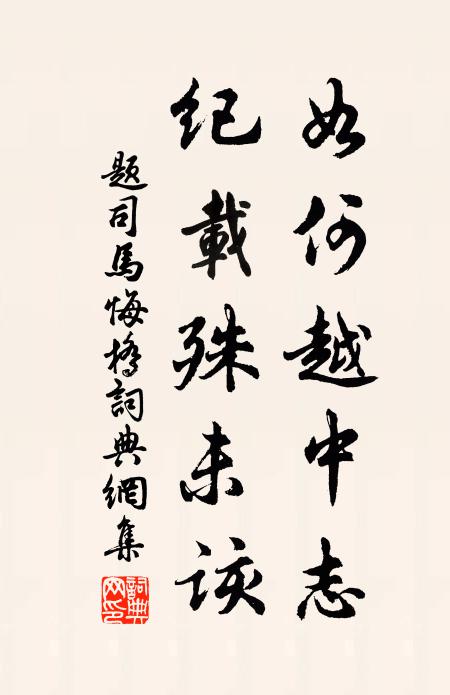 如何越中志
紀載殊未該
題司馬悔橋詞典網集
詞典網印